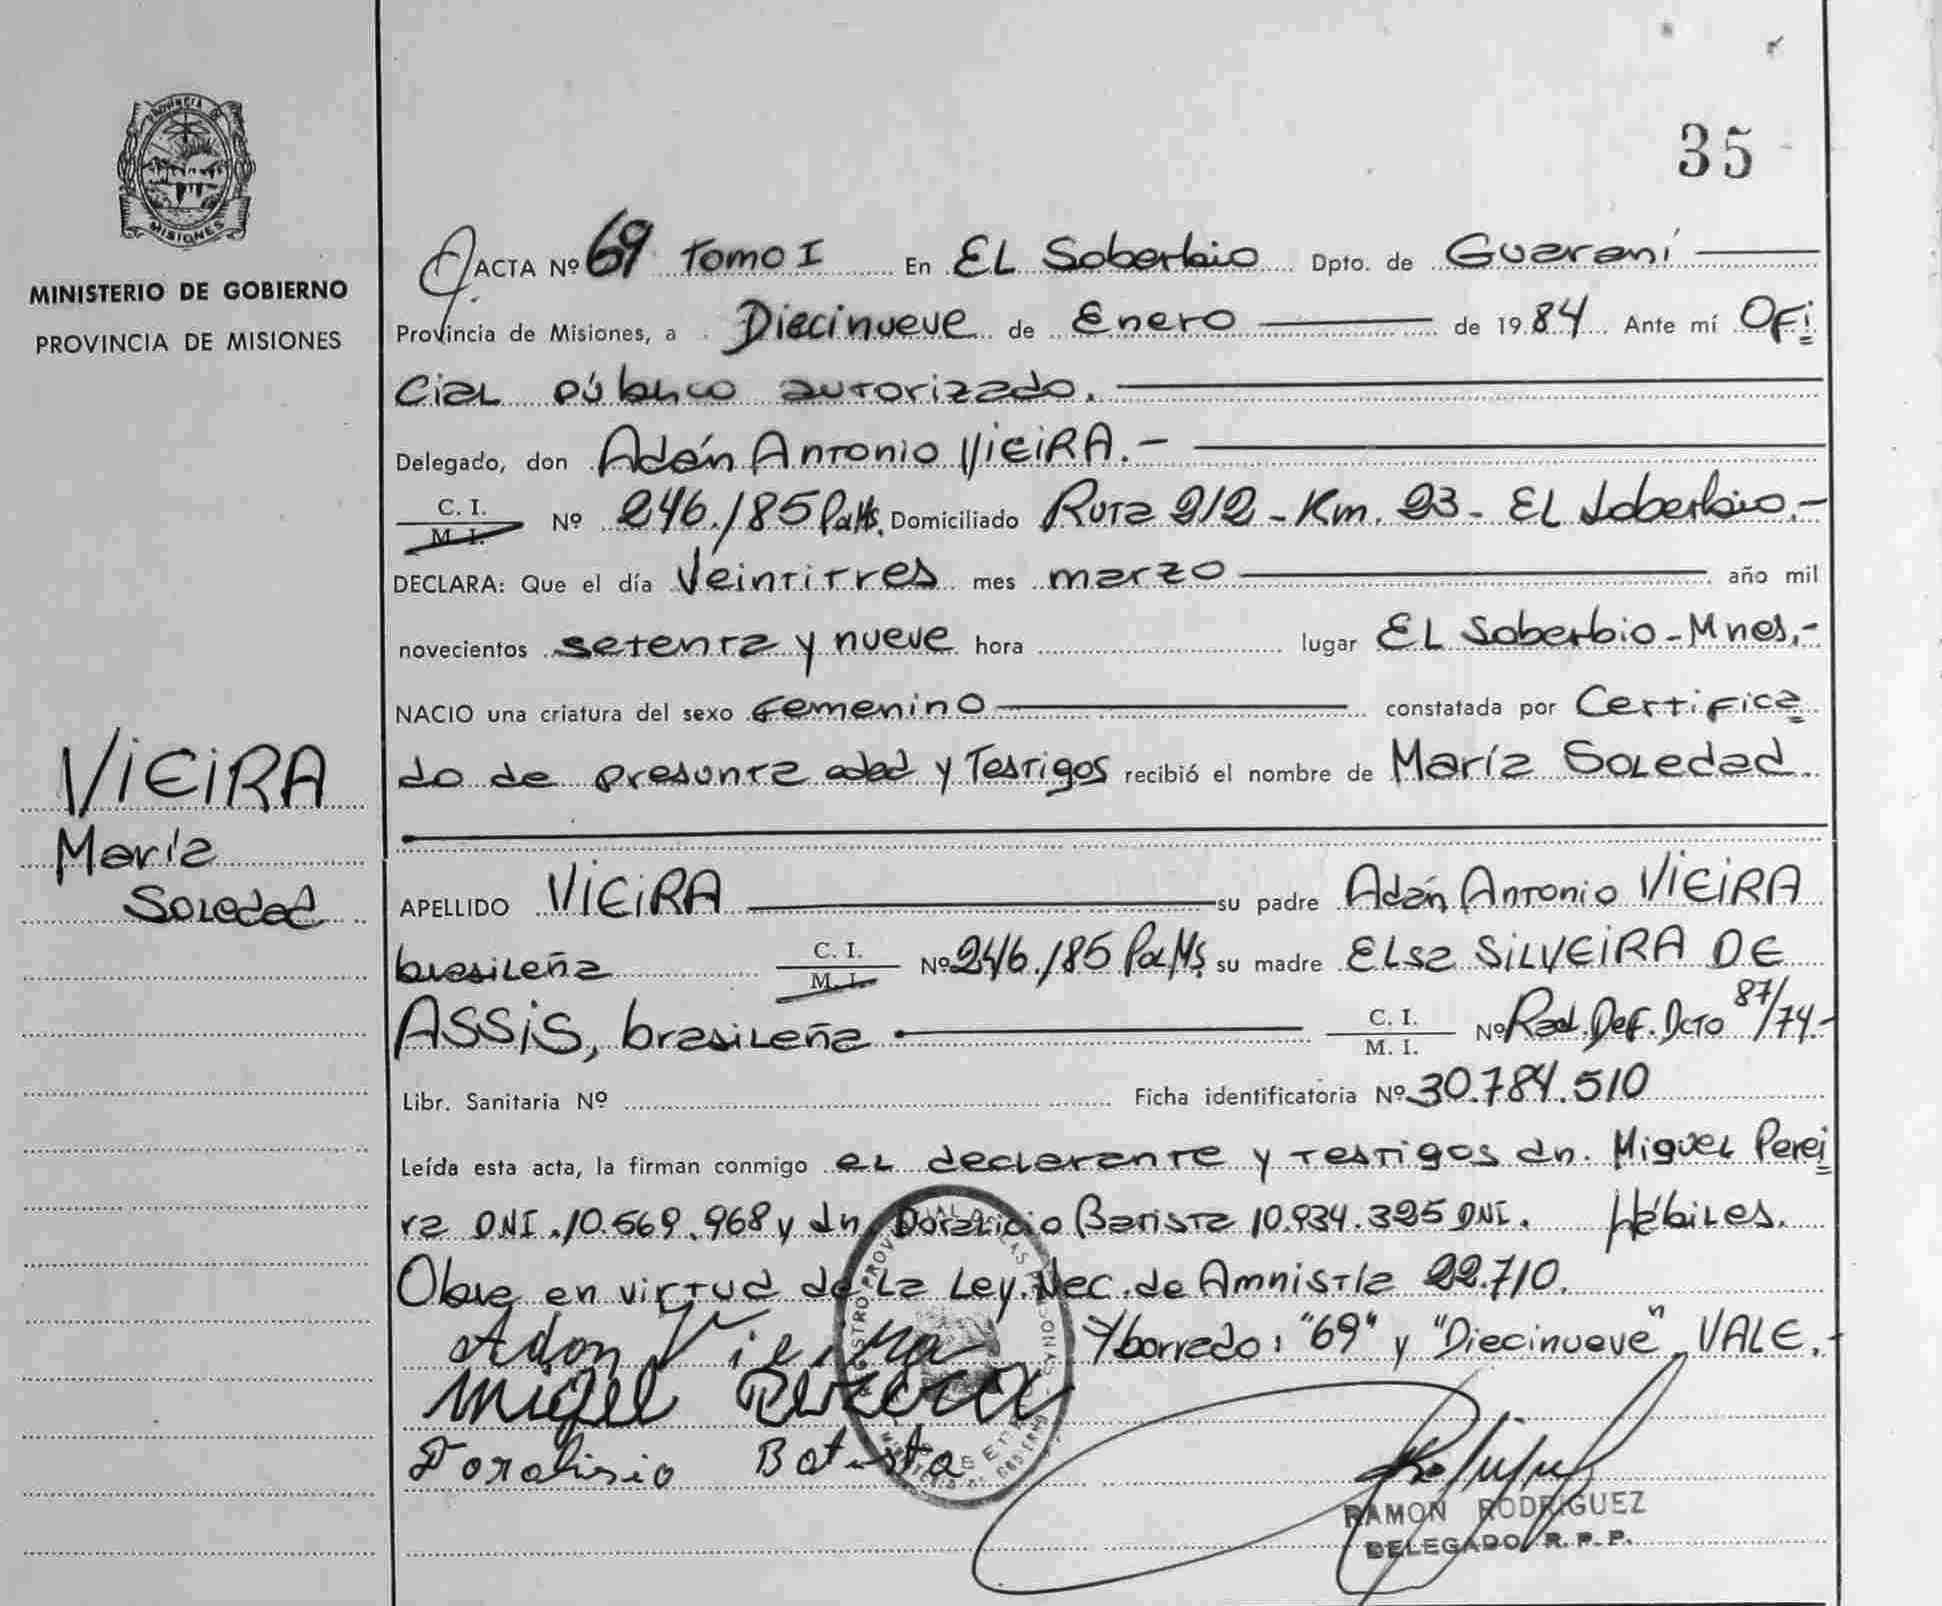 PROVINCIA DE
MISIONES
MINISTERIO DE GOBIERNO
PROVINCIA DE MISIONES
VIEIRA
María
Soledad
35
ACTA Nº 69 Tomo I En EL Soberbio Dpto. de Guaraní
Provincia de Misiones, a Diecinueve de Enero de 1984 Ante mí OFi
cial público autorizado.
Delegado, don Adán Antonio VIEIRA.-
C. I.
M. I.
Nº 246./85 Pol Ms. Domiciliado Ruta 212 - Km. 23 - EL Soberbio.-
DECLARA: Que el día Veintitres mes marzo año mil
novecientos setenta y nueve hora lugar EL Soberbio - Mnes.-
NACIO una criatura del sexo femenino constatada por Certifica
do de presunta edad y Testigos recibió el nombre de María Soledad
APELLIDO VIEIRA su padre Adán Antonio VIEIRA
brasileña C. I. M. I. Nº 246./85 Pol Ms su madre ELsa SILVEIRA DE
ASSIS, brasileña C. I. M. I. Nº Rad. Def. Dcto 87/74.-
Libr. Sanitaria Nº Ficha identificatoria Nº 30.784.510
Leída esta acta, la firman conmigo el declarante y testigos dn. Miguel Perei
ra DNI. 10.569.968 y dn Doralicio Batista 10.934.325 DNI. Hábiles.
Obre en virtud de La Ley. Nac. de Amnistía 22.710.
Adon Vieira
Y/borrado: "69" y "Diecinueve" VALE.-
Miguel
Batista
RAMON RODRIGUEZ
DELEGADO R. P. P.